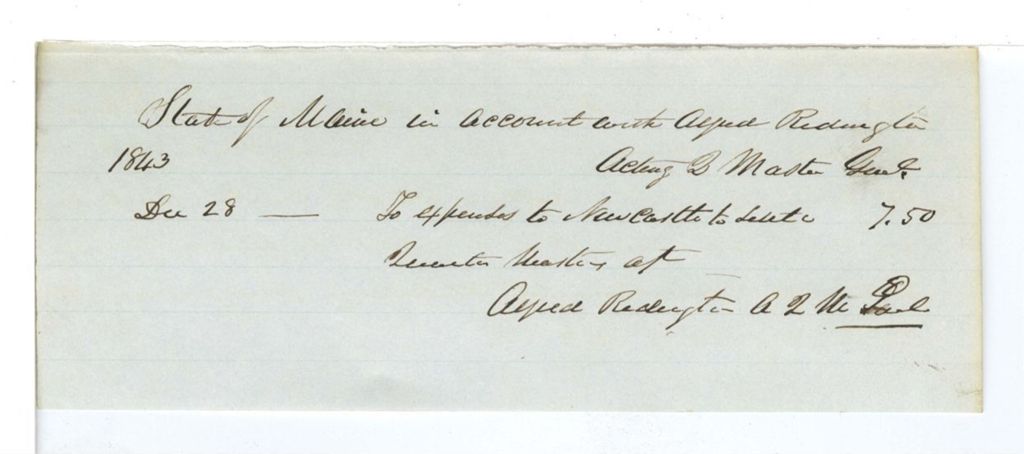 State of Maine in account with Alfred Redington
1843 Acting Q Master Genl.
Dec 28 — To expenses to New Castle to settle 7.50
Quarter Masters
Alfred Redington A Q M Genl